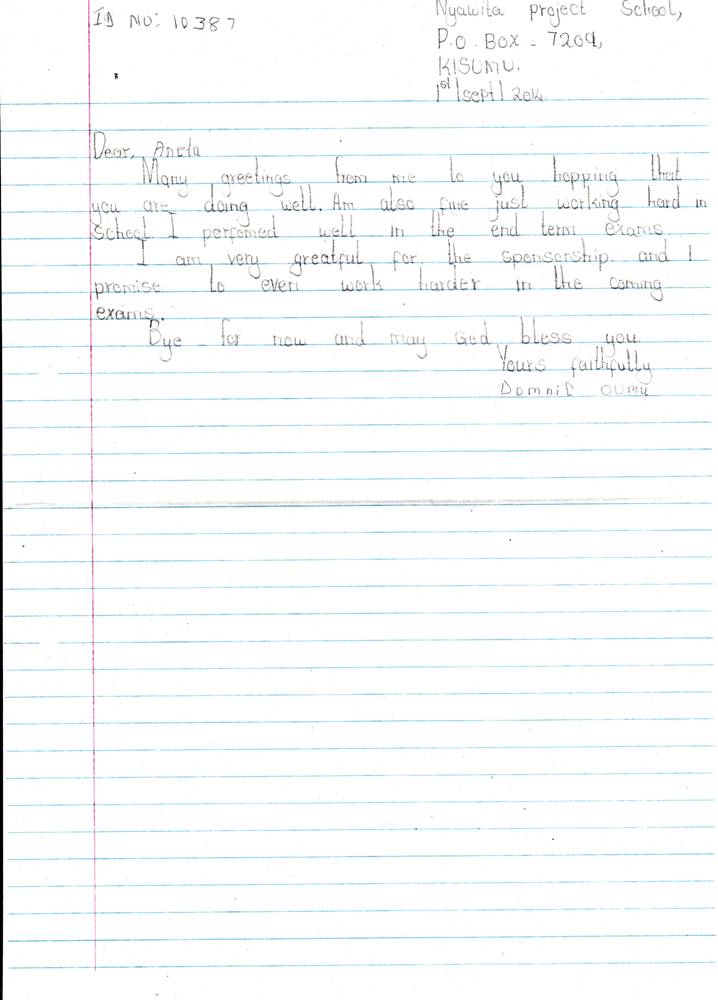 ID NO: 10387
Nyawita project School,
P.O. BOX - 7209,
KISUMU.
1st|sept|2014.
Dear, Aneta
Many greetings from me to you hopping that
you are doing well. Am also fine just working hard in
school. I perfomed well in the end term exams.
I am very greatful for the sponsorship and I
promise to even work harder in the coming
exams.
Bye for now and may God bless you.
Yours faithfully
Domnic